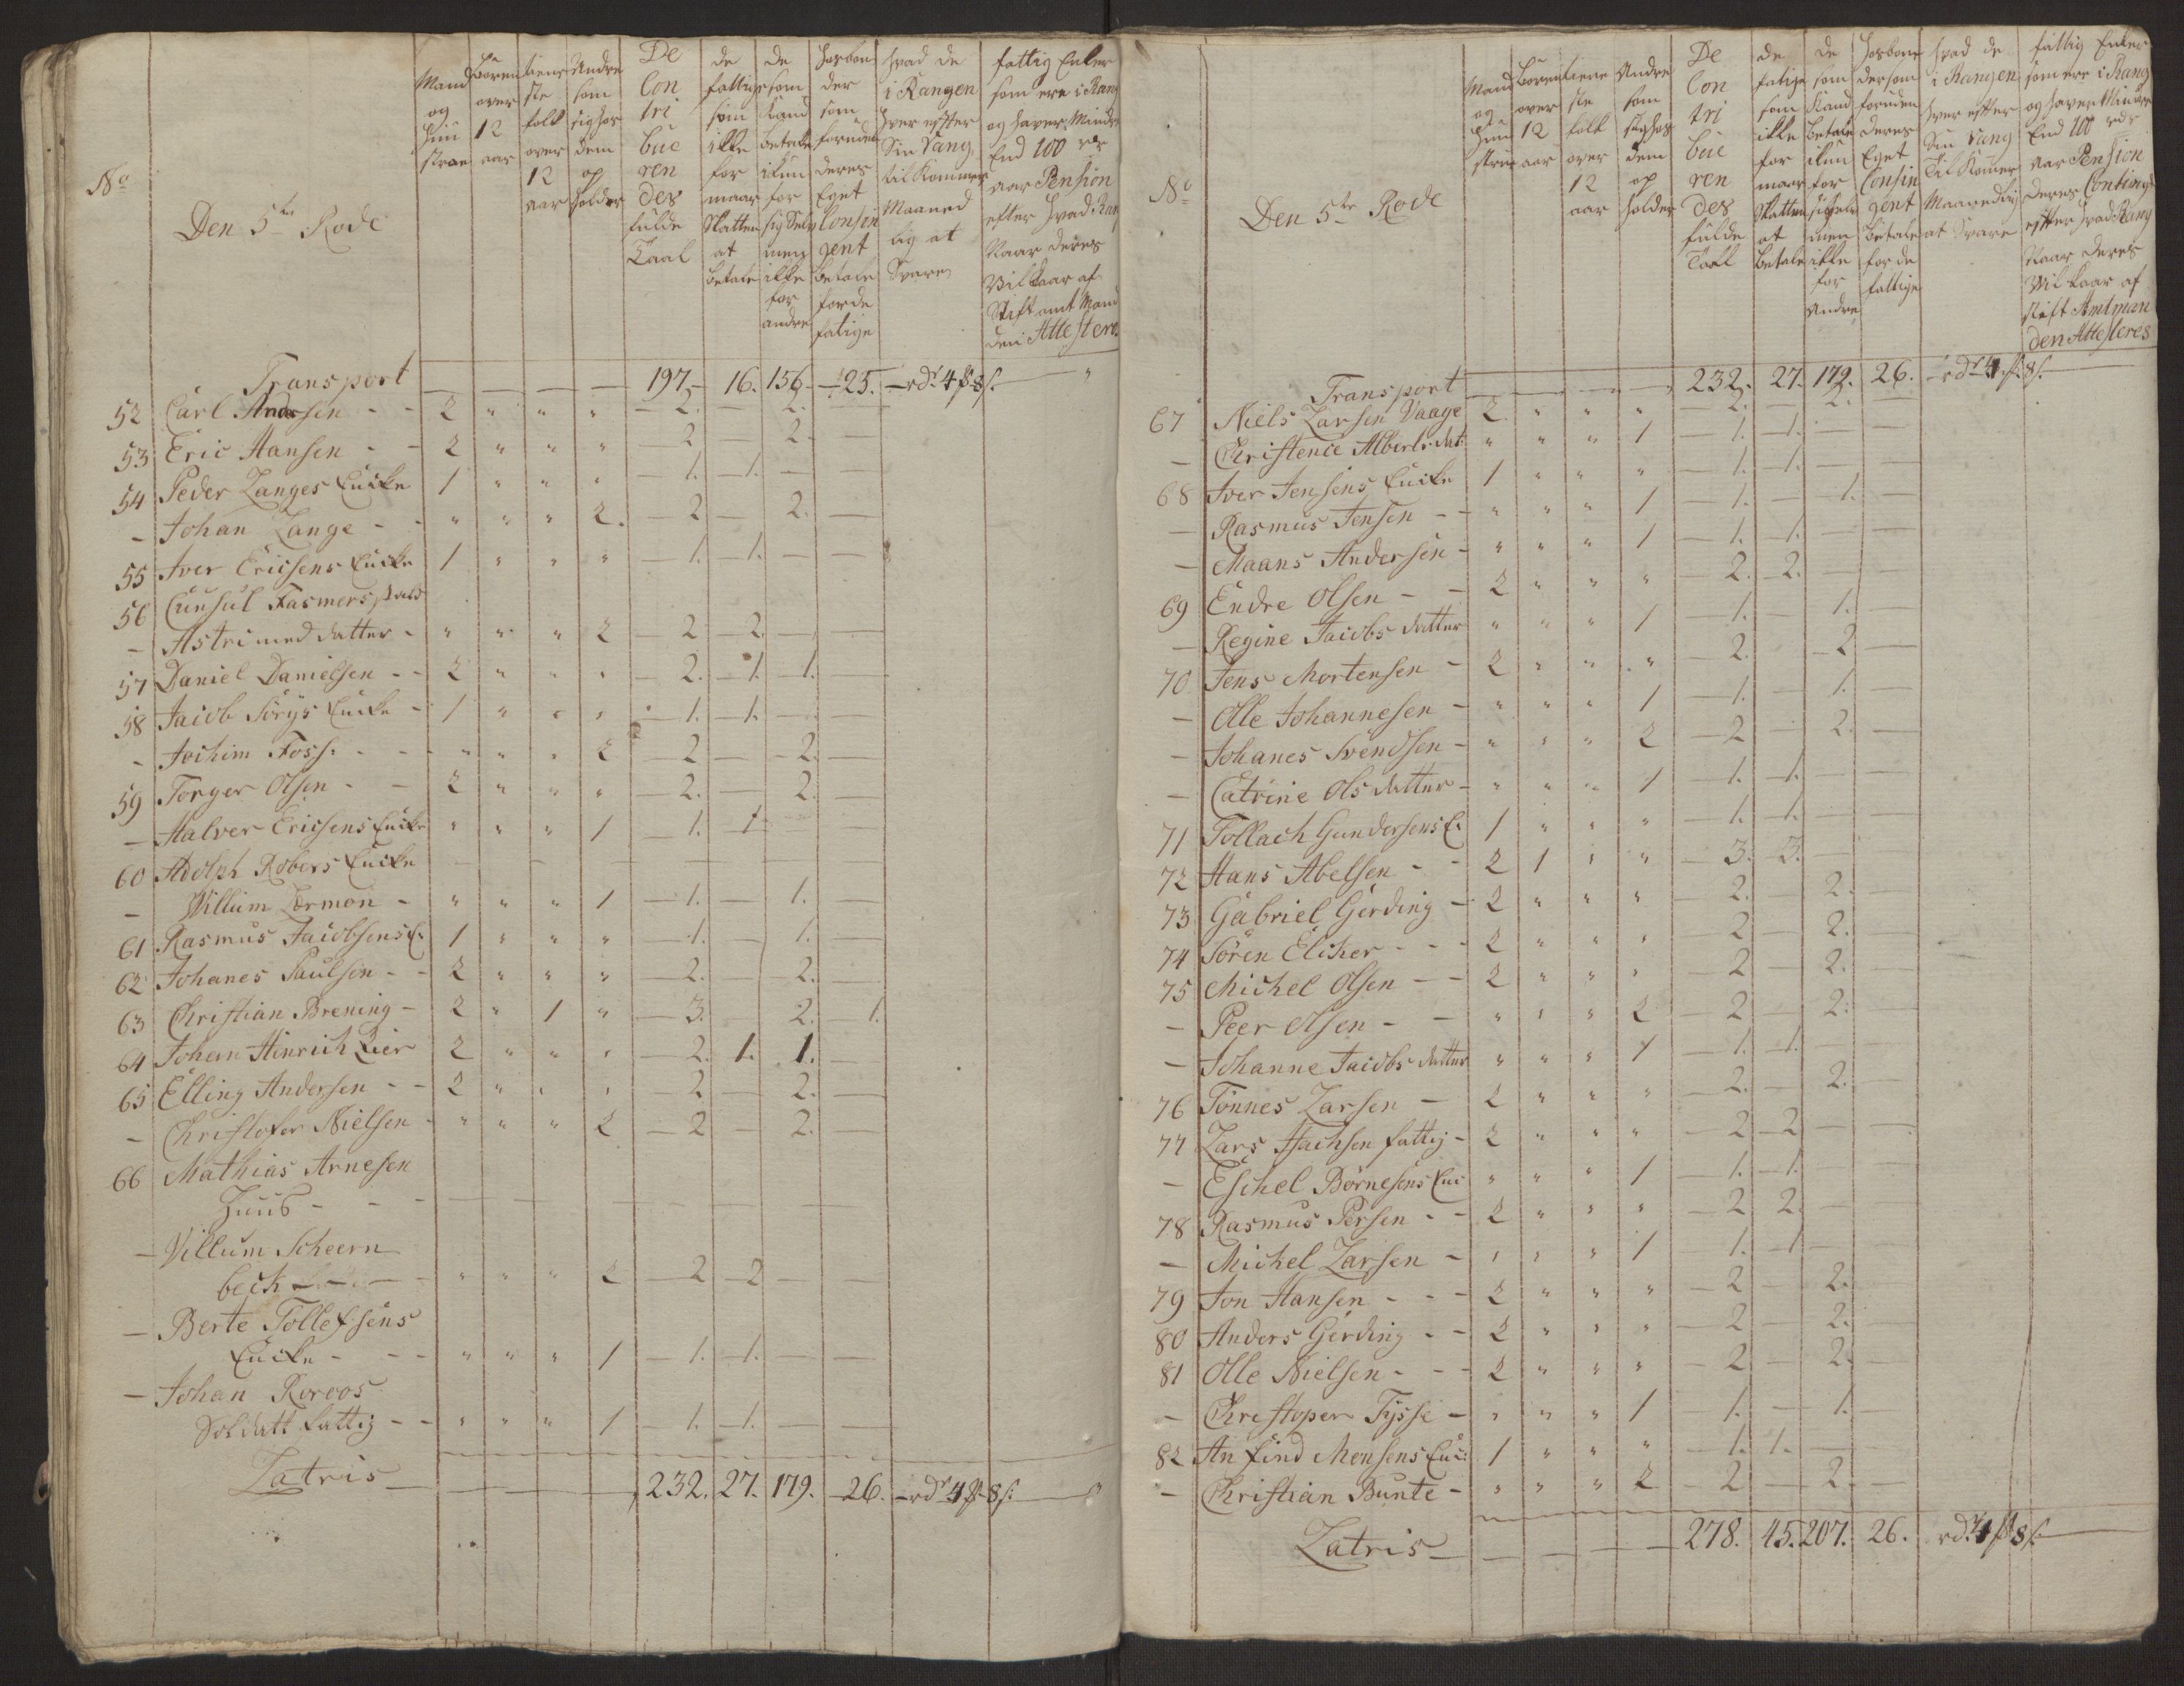 No
Den 5te Rode
Mand og Hustrue
Børen over 12 aar
tiene ste folk over 12 aar
Andre som sig hos dem op holder
De Con tri bue ren des fulde Taal
de fattige som ikke for maar Skatten at betale
de som Kand betale ikun for sig Selv men ikke for andre
Hosbon der som foruden deres Eget Consin gent betale for de fatige
hvad de i Rangen hver efter Sin Rang til Kommer Maaned lig at Svare
fattig Enker som ere i Rang og haver Mindre End 100 rdr aar Pension efter hvad Rang Naar deres Vilkaar af Stiftamt Mand den Attesteres
Transport — — — — 197. 16. 156. 25. — rdr 4 ß 8 s. "
52 Carl Andersen - - 2 " " " 2. — 2. —
53 Eric Hansen - - 2 " " " 2 — 2. —
54 Peder Langes Encke 1 " " " 1. 1. — —
- Johan Lange - - " " " 2. 2 — 2. —
55 Iver Ericsens Encke 1 " " " 1. 1. — —
56 Cunsul Fasmers
- Astri med datter - " " " 2 2 2. — —
57 Daniel Danielsen - - 2 " " " 2. 1. 1. —
58 Jacob Sørys Encke - 1 " " " 1. 1. — —
- Jochim Foss: - - " " " 2 2 — 2. —
59 Torger Olsen - - 2 " " " 2. — 2. —
- Halver Ericsens Encke " " " 1 1. 1 — —
60 Adolph Robers Encke — — — — — — — —
- Villum Lormon - " " " 1 1. — 1. —
61 Rasmus Jacobsens E: 1 " " " 1. — 1. —
62 Johanes Paulsen - - 2 " " " 2. — 2. —
63 Christian Brening - 2 " 1 " 3. 2. 1.
64 Johan Hinrich Lier 2 " " " 2. 1. 1. —
65 Elling Andersen - - 2 " " " 2 — 2. —
- Christofer Nielsen - " " " 2 2 — 2. —
66 Mathias Arnesen
Huus - - - — — — — — — — —
- Villum Scheern
beck — - — " " " 2 2 2 — —
- Berte Tollefsens
Encke - - - " " " 1 1. 1. — —
- Johan Roroos
Soldatt fattig - - " " " 1 1. 1. — —
Latris — — — — 232. 27. 179. 26. — rdr 4 ß 8 s. "
No
Den 5te Rode
Mand og Hustrue
Børen over 12 aar
tiene ste folk over 12 aar
Andre som sig hos dem op holder
De Con tri bue ren des fulde Taal
de fatige som ikke for maar Skatten at betale
de som Kand betale ikun for sig selv men ikke for Andre
Hosbonder som foruden deres Eget Consin gent betale for de fattige
hvad de i Rangen hver efter Sin Rang Til Komer Maanedlig at Svare
fattig Enker som ere i Rang og haver Mindre End 100 rdr aar Pension deres Contingt efter hvad Rang Naar deres Vilkaar af stift Amtman den Attesteres
Transport — — — — 232. 27. 179. 26. — rdr 4 ß 8 s.
67 Niels Larsen Vaage 2 " " " 2. — 2. —
- Christence Alberts dat: " " " 1 1. 1. — —
68 Iver Jensens Encke 1 " " " 1. 1. — —
- Rasmus Jensen - - " " " 1 1. — 1. —
- Maans Andersen - " " " 1 1. 1. — —
69 Endre Olsen - - 2 " " " 2. 2. — —
- Regine Jacobs datter " " " 1 1. — 1. —
70 Jens Mortensen - 2 " " " 2. 2 —
- Olle Johannesen - " " " 1 1. — 1. —
- Johanes Svendsen - " " " 2 2 — 2. —
- Catrine Ols datter - " " " 1 1. 1. — —
71 Tollach Gundersens E: 1 " " " 1. 1. — —
72 Hans Abelsen - - 2 1 " " 3. 3. — —
73 Gabriel Gerding - 2 " " " 2. — 2. —
74 Søren Elicher - - - 2 " " " 2 — 2. —
75 Michel Olsen - - 2 " " " 2 — 2. —
- Peer Olsen - - " " " 2 2 — 2. —
- Johanne Jacobs datter " " " 1 1. 1. — —
76 Tönnes Larsen - 2 " " " 2. — 2. —
77 Lars Isachsen fattig - 2 " " " 2 2 — —
- Eschel Børnesens Enc " " " 1 1. 1. — —
78 Rasmus Persen - - 2 " " " 2 2. — —
- Michel Larsen - " " " 1 1. 1 — —
79 Jon Hansen - - - 2 " " " 2 — 2. —
80 Anders Gerding - - 2 " " " 2 — 2. —
81 Olle Nielsen - - - 2 " " " 2 — 2. —
- Christoper Tysse - " " " 1 1. — 1. —
82 An find Monsens Enc: 1 " " " 1. 1. — —
- Christian Bunte - " " " 2 2 — 2. —
Latris — — — — 278. 45. 207. 26. rdr 4 ß 8 s.